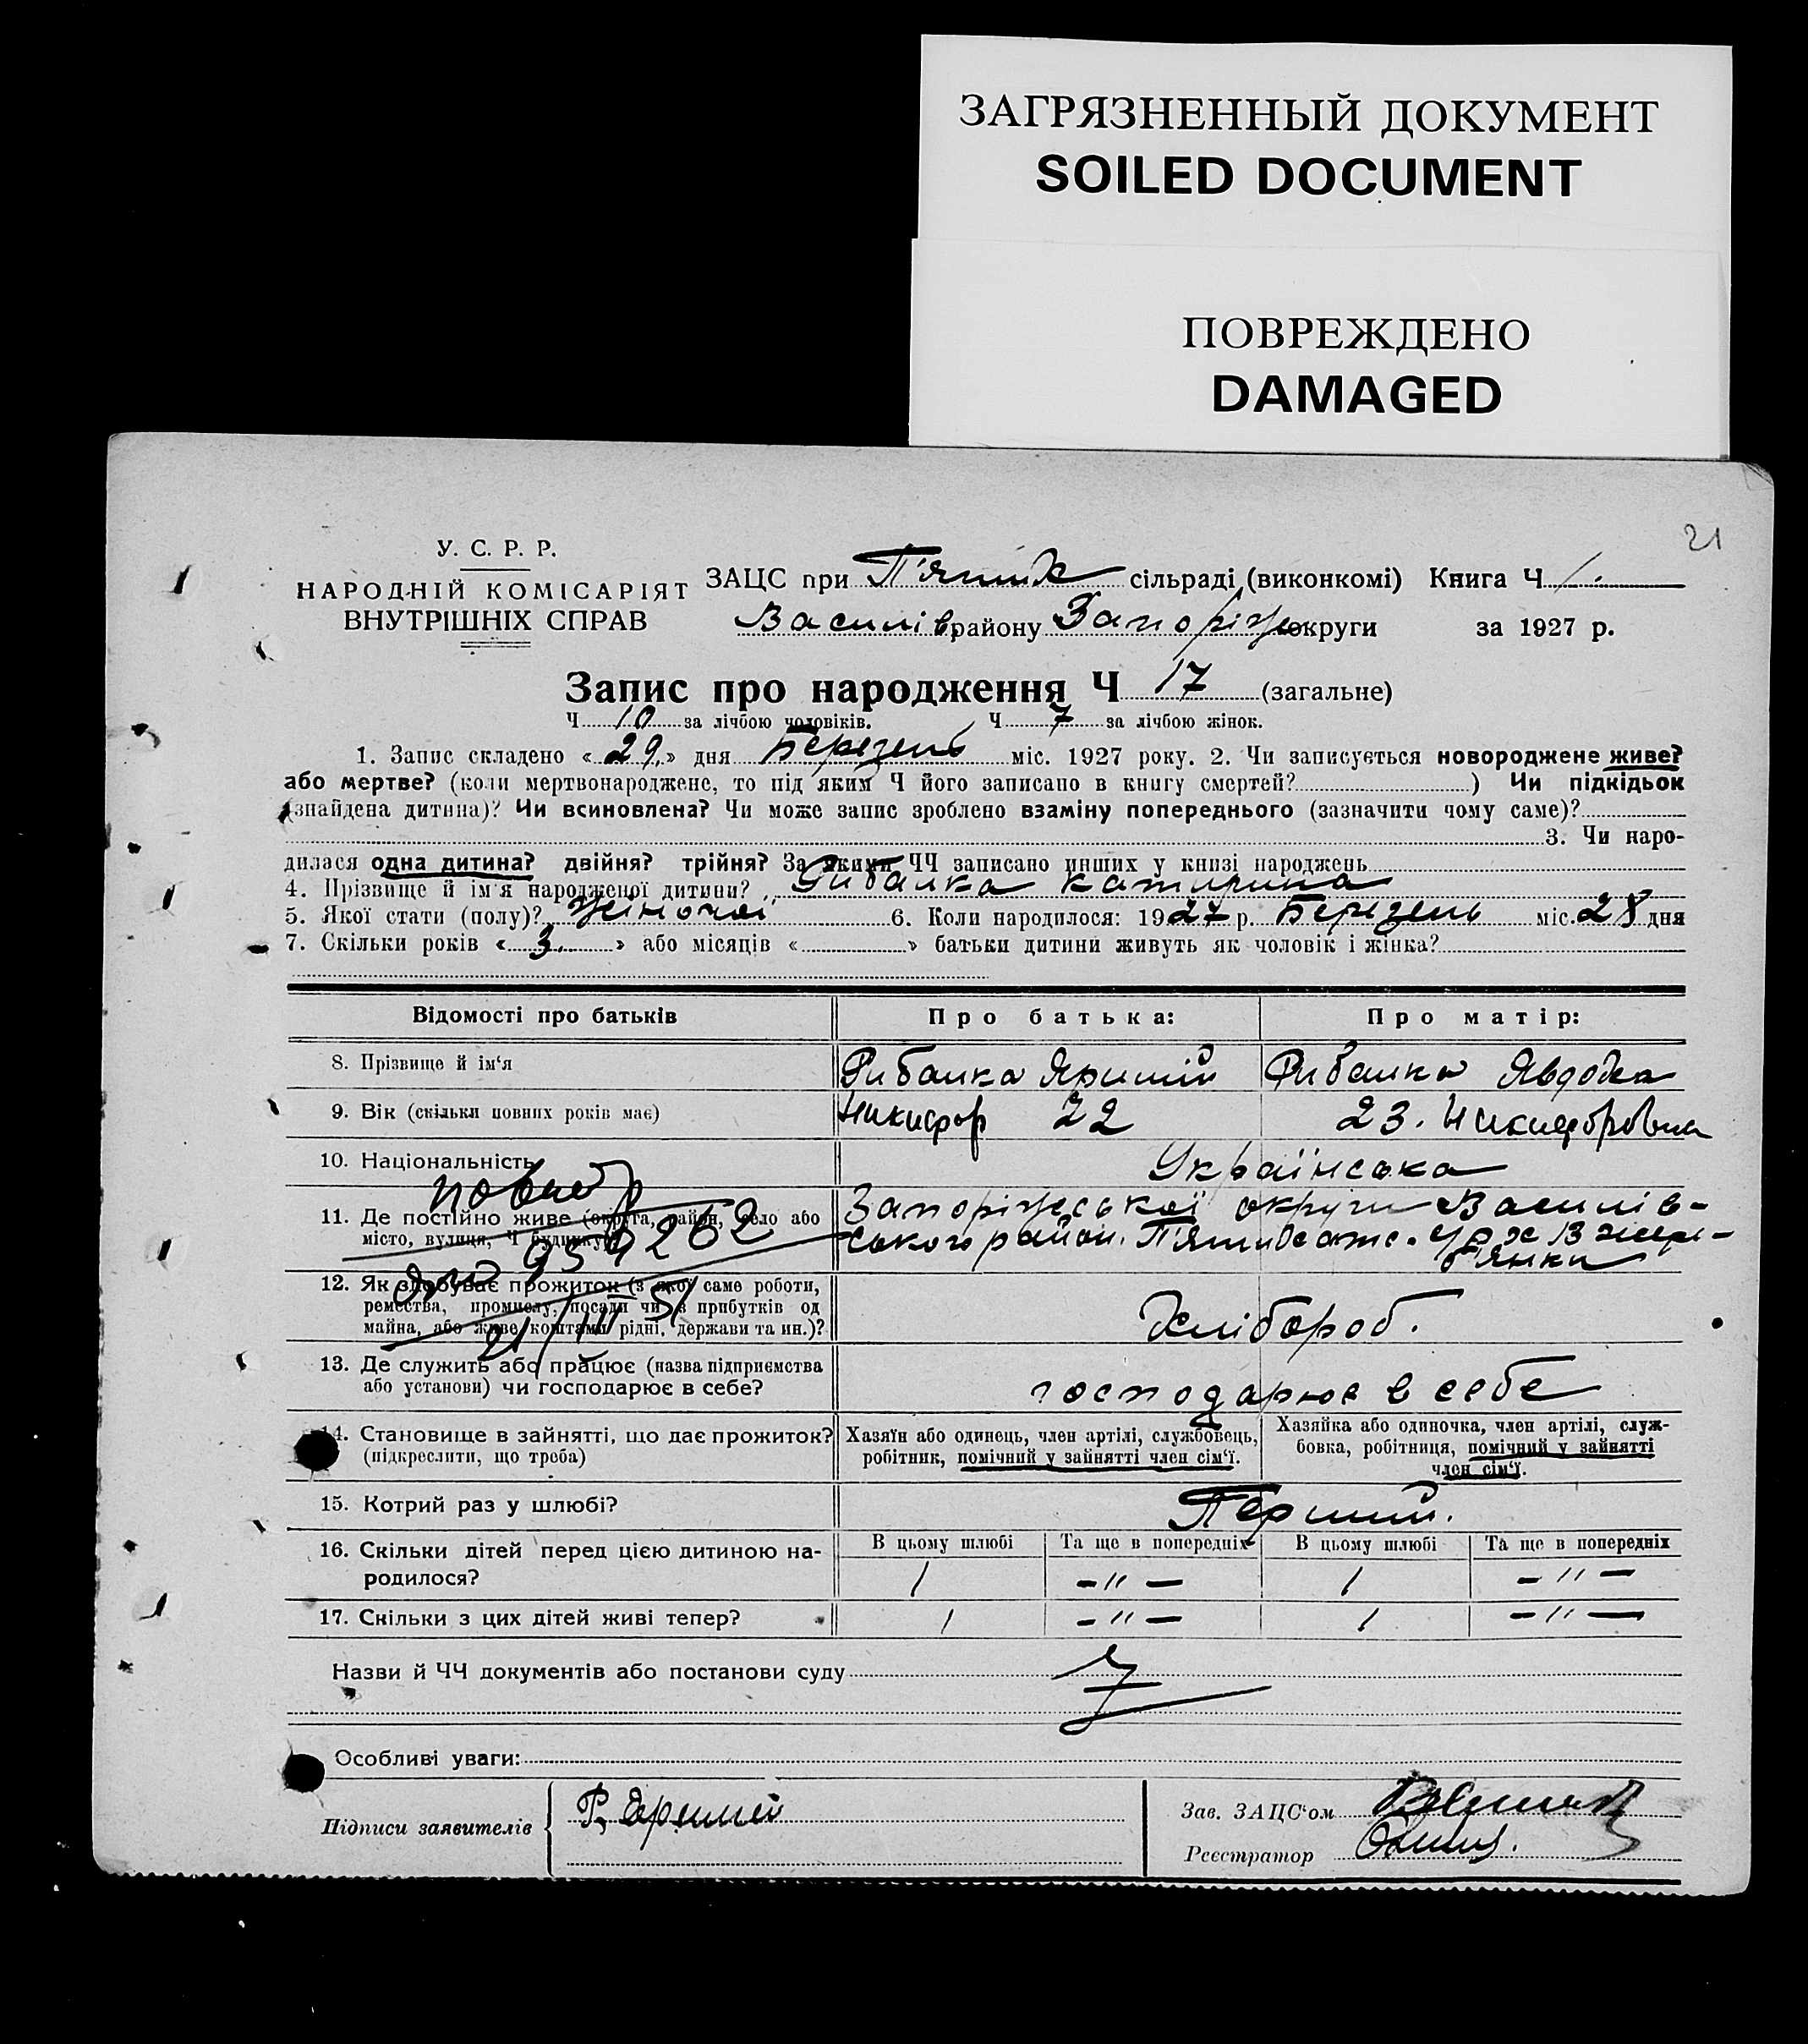 ЗАГРЯЗНЕННЫЙ ДОКУМЕНТ
SOILED DOCUMENT
ПОВРЕЖДЕНО
DAMAGED
21
У. С. Р. Р.
НАРОДНІЙ КОМІСАРІЯТ
ВНУТРІШНІХ СПРАВ
ЗАЦС при сільраді (виконкомі) Книга Ч 1.
Василів району Запоріж округи за 1927 р.
Запис про народження Ч 17 (загальне)
Ч 10 за лічбою чоловіків. Ч 7 за лічбою жінок.
1. Запис складено « 29 » дня Березень міс. 1927 року. 2. Чи записується новороджене живе?
або мертве? (коли мертвонароджене, то під яким Ч його записано в книгу смертей? ) Чи підкідьок
(знайдена дитина)? Чи всиновлена? Чи може запис зроблено взаміну попереднього (зазначити чому саме)?
3. Чи наро-
дилася одна дитина? двійня? трійня? За якими ЧЧ записано инших у книзі народжень
4. Прізвище й ім'я народженої дитини? Рибалка Катирина
5. Якої стати (полу)? Жіночої 6. Коли народилося: 1927 р. Березень міс. 28 дня
7. Скільки років « 3. » або місяців « » батьки дитини живуть як чоловік і жінка?
Відомості про батьків Про батька: Про матір:
8. Прізвище й ім'я Рибалка Яримій Рибалка Явдоха
9. Вік (скільки повних років має) Никифор 22 23. Никифоровна
10. Національність Українська
11. Де постійно живе (округа, район, село або
місто, вулиця, Ч будинку)
Запоріжської округи Василів-
ського район.
12. Як здобуває прожиток (з якої саме роботи,
ремества, промислу, посади чи з прибутків од
майна, або живе коштами рідні, держави та ин.)?
Хлібороб.
13. Де служить або працює (назва підприємства
або установи) чи господарює в себе?
господарює в себе
14. Становище в зайнятті, що дає прожиток?
(підкреслити, що треба)
Хазяїн або одинець, член артілі, службовець,
робітник, помічний у зайнятті член сім'ї.
Хазяйка або одиночка, член артілі, служ-
бовка, робітниця, помічний у зайнятті
член сім'ї.
15. Котрий раз у шлюбі? Перший.
16. Скільки дітей перед цією дитиною на-
родилося?
В цьому шлюбі Та ще в попередніх В цьому шлюбі Та ще в попередніх
1 — " — 1 — " —
17. Скільки з цих дітей живі тепер? 1 — " — 1 — " —
Назви й ЧЧ документів або постанови суду
Особливі уваги:
Підписи заявителів Р. Яримей
Зав. ЗАЦС'ом
Реєстратор